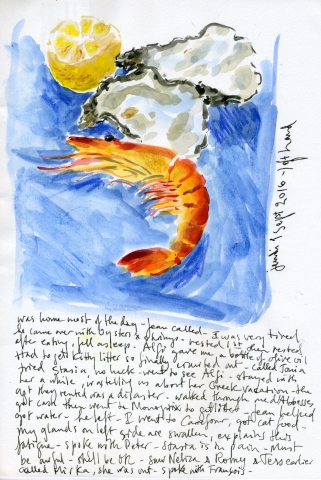 1 Sept 2016 - left hand
was home most of the day - Jean called - I was very tired
he came over with oysters & shrimps - rested 1st then rested
after eating, fell asleep. Alfio gave me a bottle of olive oil
Had to get kitty litter so finally ventured out - called Tania
tried Stasia no luck - went to see Alfio - stayed with
her a while, was telling us about her Greek vacation - the
apt they rented was a disaster - walked through
got cash then went to Monoprix to get litter - Jean helped
got water - he left - I went to Carrefour, got cat food -
my glands on left side are swollen, explains this
fatigue - spoke with Peter - Stasia is in pain - must
be awful - she'll be OK - saw & Romy & Jess earlier
called Mirka, she was out - spoke with François -